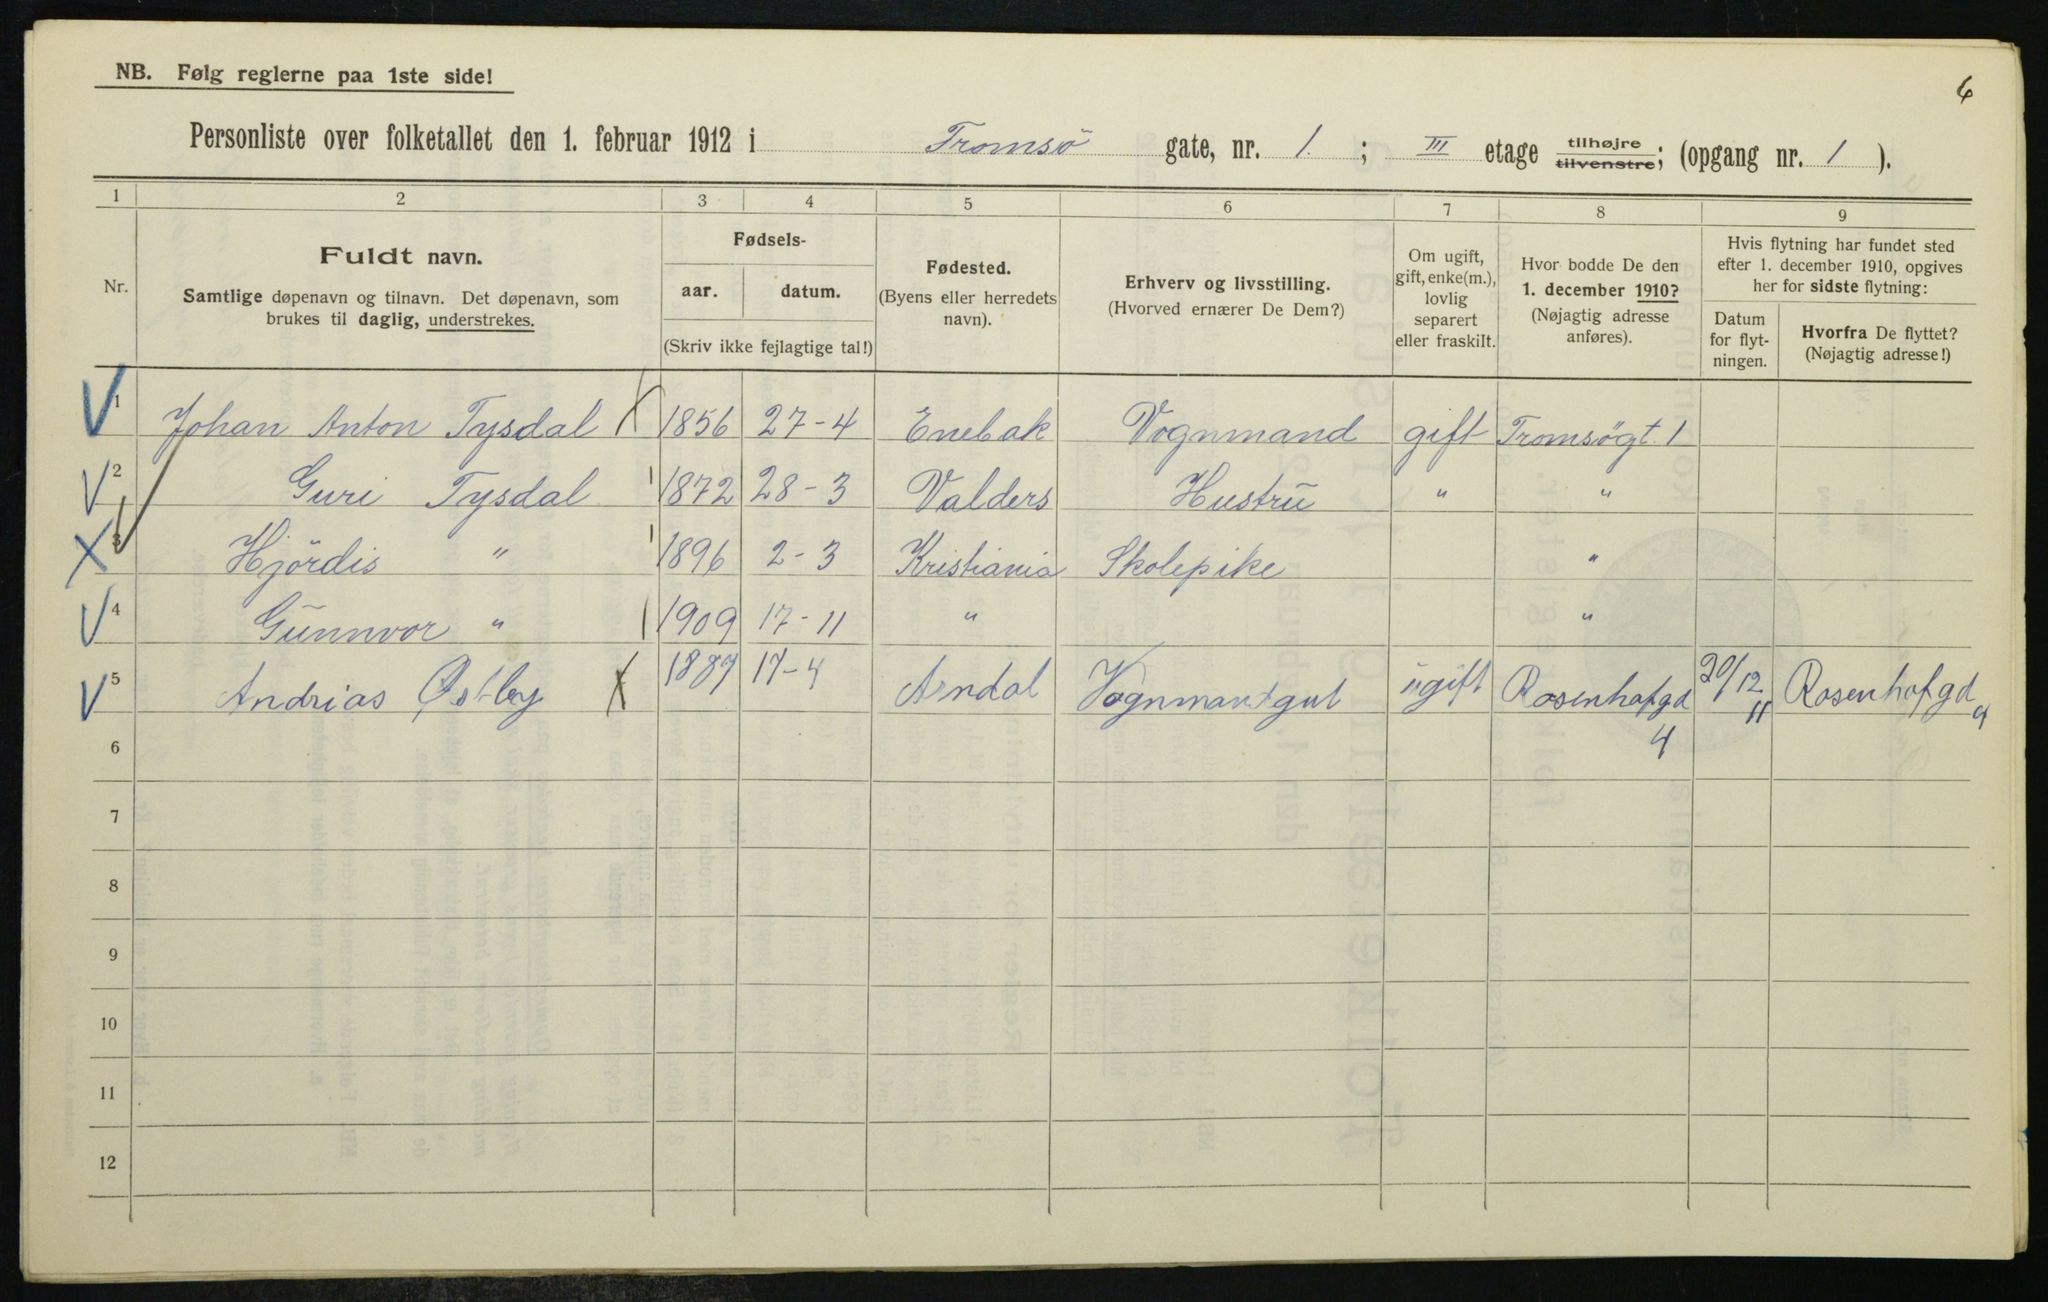 6
NB. Følg reglerne paa 1ste side!
Personliste over folketallet den 1. februar 1912 i Tromsö gate, nr. 1 ; III etage tilhøjre tilvenstre; (opgang nr. 1 ).
1 2 3 4 5 6 7 8 9
Nr.
Fuldt navn.
Samtlige døpenavn og tilnavn. Det døpenavn, som
brukes til daglig, understrekes.
Fødsels-
aar. datum.
(Skriv ikke fejlagtige tal!)
Fødested.
(Byens eller herredets
navn).
Erhverv og livsstilling.
(Hvorved ernærer De Dem?)
Om ugift,
gift, enke(m.),
lovlig
separert
eller fraskilt.
Hvor bodde De den
1. december 1910?
(Nøjagtig adresse
anføres).
Hvis flytning har fundet sted
efter 1. december 1910, opgives
her for sidste flytning:
Datum
for flyt-
ningen.
Hvorfra De flyttet?
(Nøjagtig adresse!)
1 Johan Anton Tysdal 1856 27-4 Enebak Vognmand gift Tromsøgt. 1
2 Guri Tysdal 1872 28-3 Valders Hustru " "
3 Hjördis " 1896 2-3 Kristiania Skolepike "
4 Gunnvor " 1909 17-11 " "
5 Andrias Østby 1887 17-4 Arndal Vognmandgut ugift Rosenhofgd 4 20/12 11 Rosenhofgd 4
6
7
8
9
10
11
12